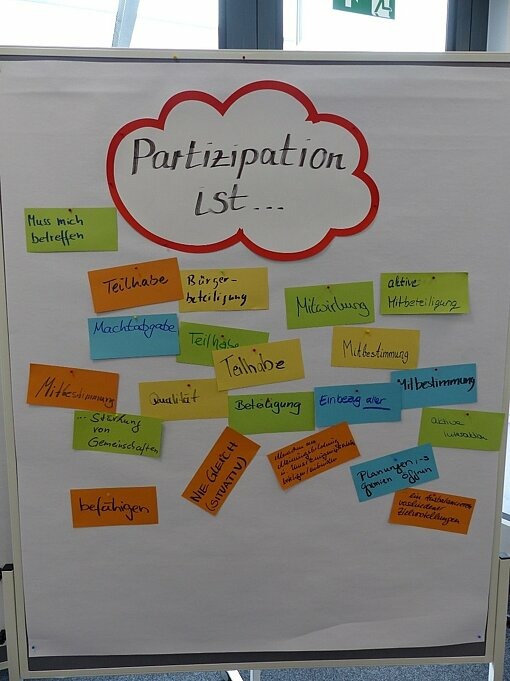 Partizipation
ist...
Muss mich
betreffen
Teilhabe
Bürger-
beteiligung
Mitwirkung
aktive
Mitbeteiligung
Machtabgabe
Teilhabe
Teilhabe
Mitbestimmung
Mitbestimmung
Qualität
Beteiligung
Einbezug aller
Mitbestimmung
... Stärkung
von
Gemeinschaften
aktive
NIE GLEICH
(SITUATIV)
Menschen an
Meinungsbildung
Planungen
öffnen
befähigen
ein
Zielvorstellungen